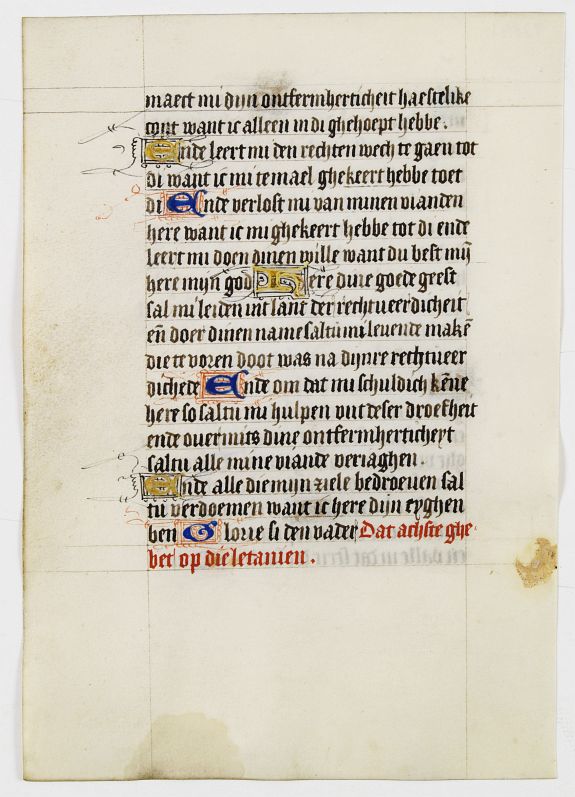 maect mi dijn ontfermherticheit haestelike
cont want ic alleen in di ghehoept hebbe.
Ende leert mi den rechten wech te gaen tot
di want ic mi te mael ghekeert hebbe toet
di Ende verlost mi van minen vianden
here want ic mi ghekeert hebbe tot di ende
leert mi doen dinen wille want du best mÿ
here mijn god Here dine goede geest
sal mi leiden int lant der rechtueerdicheit
eñ doer dinen name saltu mi leuende makẽ
die te voren doot was na dijnre rechtueer
dichede Ende om dat mi schuldich kẽne
here so saltu mi hulpen vut deser droefheit
ende ouermits dine ontfermhertichეyt
saltu alle mine viande veriaghen.
Ende alle die mijn ziele bedroeuen sal
tu verdoemen want ic here dijn eyghen
ben Glorie si den vader Dat achste ghe
bet op die letanien.